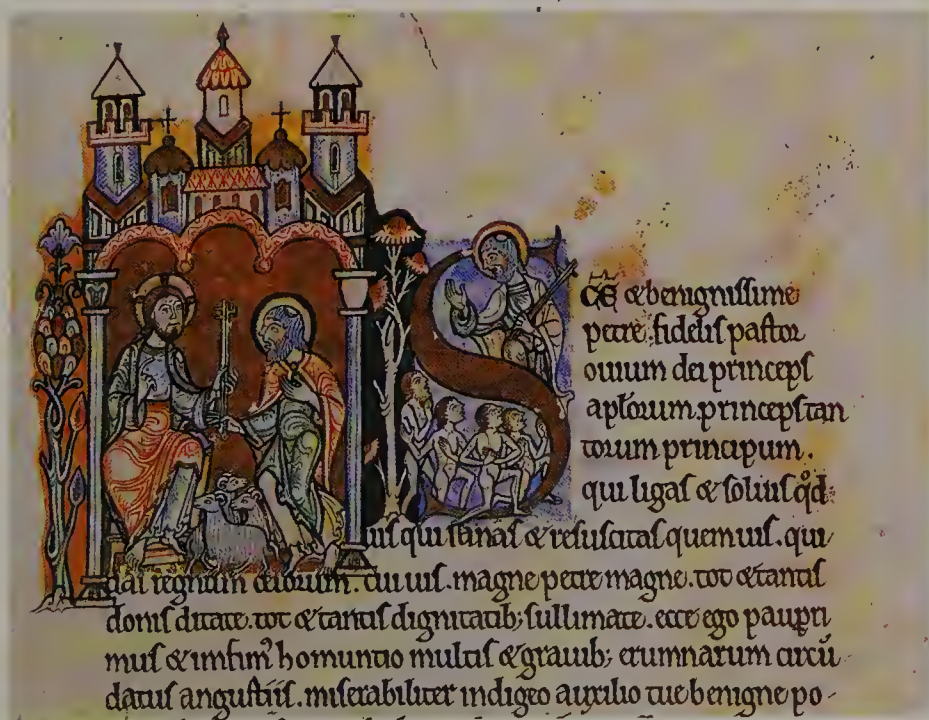 c̄e &benignissime
petre. fidelis pastor
ouium dei princeps
apłorum. princeps tan
torum principum.
qui ligas & soluis q̊d
uis qui sanas & resuscitas quem uis. qui
das regnum celorum. cui uis. magne petre magne. tot &tantis
donis ditate. tot &tantis dignitatib; sullimate. ecce ego paupri
mus & imfim᷒ homuntio multis &grauib; erumnarum circū
datus angustiis. miserabiliter indigeo auxilio tue benigne po-